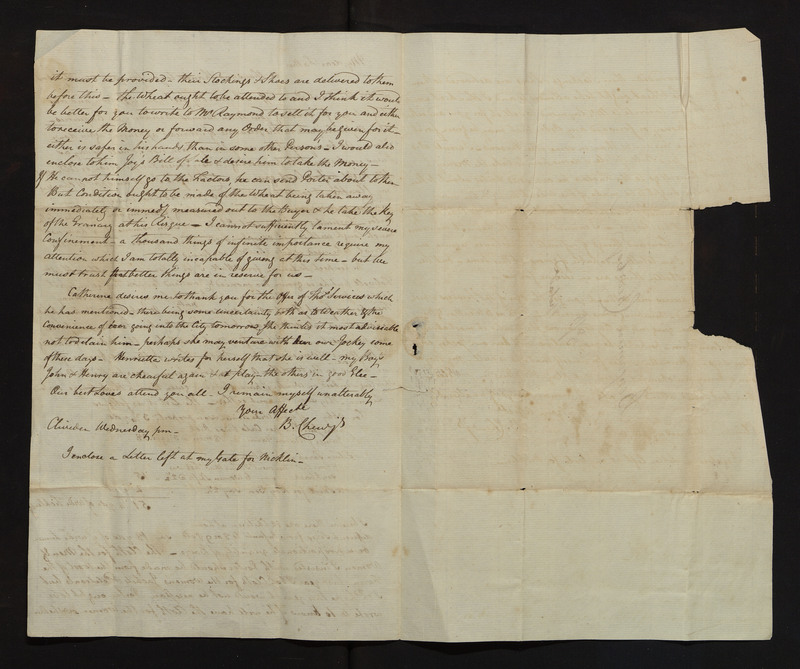 it must be provided – their Stockings & Shoes are delivered to them
before this – the Wheat ought to be attended to and I think it would
be better for you to write to Mr Raymond to sell it for you and either
to receive the Money or forward any Order that may be given for it –
either is safer in his hands than in some other Persons – I would also
inclose to him Joy's Bill of & desire him to take the Money –
If He cannot himself go to the Factors, he can send Porter about to them
But Condition ought to be made of the Wheat being taken away
immediately or immedy measured out to the Buyer & he take the Key
of the Granary at his Risque – I cannot sufficiently lament my severe
Confinement – a thousand things of infinite importance require my
attention which I am totally incapable of giving at this time – but we
must trust that better things are in reserve for us –
Catherine desires me to thank you for the Offer of Thos Services which
he has mentioned – there being some uncertainty both as to Weather & the
Convenience of going into the City tomorrow she thinks it most adviseable
not to detain him – perhaps she may venture with our Jockey some
of these days – Henrietta writes for herself that she is well – my Boys
John & Henry are chearful again & at play – the others in good Glee –
Our best Loves attend you all – I remain myself unalterably
Your Affecte
B. Chew jr
Cliveden Wednesday pm –
I enclose a Letter left at my Gate for Nicklin –